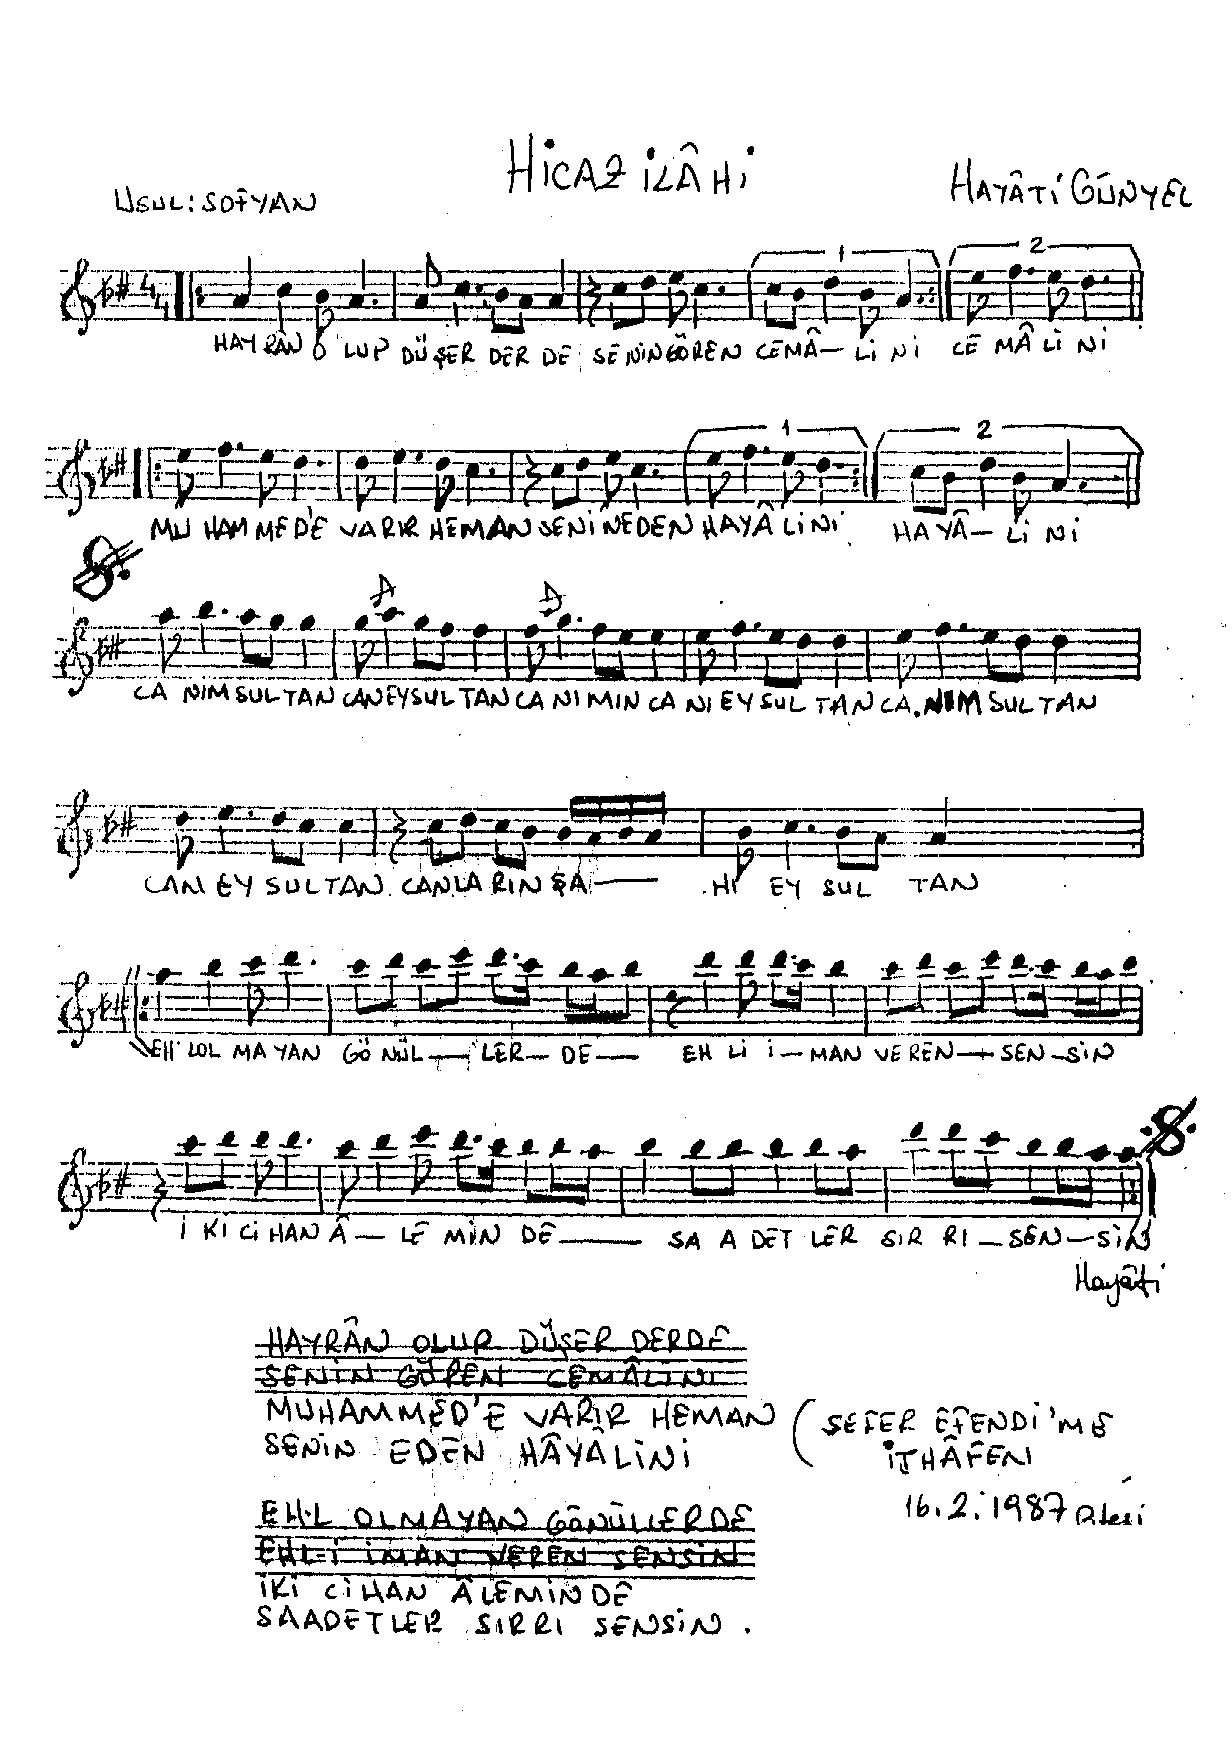 HİCAZ İLÂHİ
USUL: SOFYAN
HAYÂTİ GÜNYEL
1 2
HAY RÂN O LUP DÜŞER DER DE SENİN GÖREN CEMÂ - Lİ Nİ CE MÂ Lİ Nİ
1 2
MU HAM MED'E VARIR HEMAN SENİ NEDEN HAYÂ Lİ Nİ HA YÂ - Lİ Nİ
CA NIM SUL TAN CAN EY SUL TAN CA NI MIN CA NI EY SUL TAN CA. NIM SUL TAN
CAN EY SUL TAN CANLA RIN ŞA — HI EY SUL TAN
EH' LOL MA YAN GÖ NÜL — LER — DE — EH Lİ İ - MAN VE REN — SEN - SİN
İ Kİ Cİ HAN Â — LE MİN DE — SA A DET LER SIR RI — SEN — SİN
Hayâti
HAYRÂN OLUP DÜŞER DERDE
SENİN GÖREN CEMÂLİNİ
MUHAMMED'E VARIR HEMAN
SENİN EDEN HÂYÂLİNİ
(SEFER EFENDİ'ME
İTHÂFEN
16.2.1987
EH-L OLMAYAN GÖNÜLLERDE
EHL-İ İMAN VEREN SENSİN
İKİ CİHAN ÂLEMİNDE
SAADETLER SIRRI SENSİN.